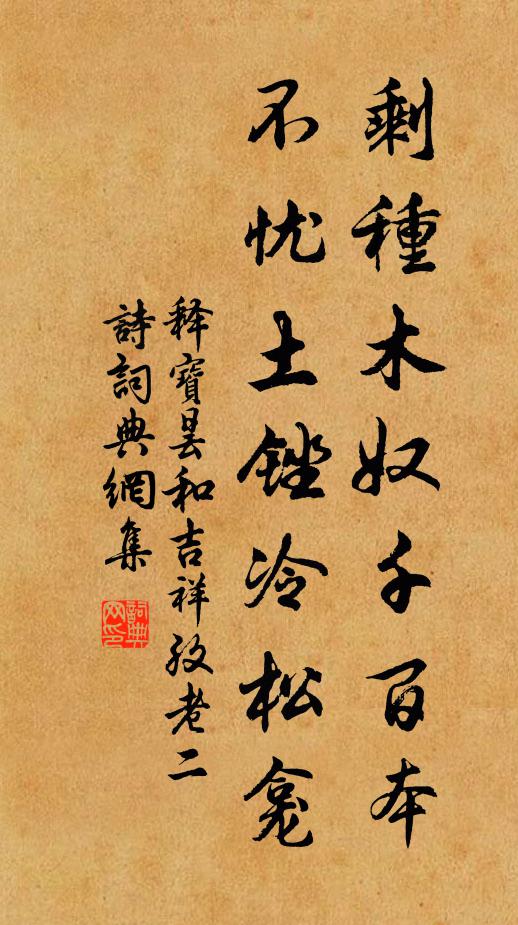 剩種木奴千百本
不忧土銼冷松龛
释寶昙和吉祥孜老二
詩詞典網集
詞典网印